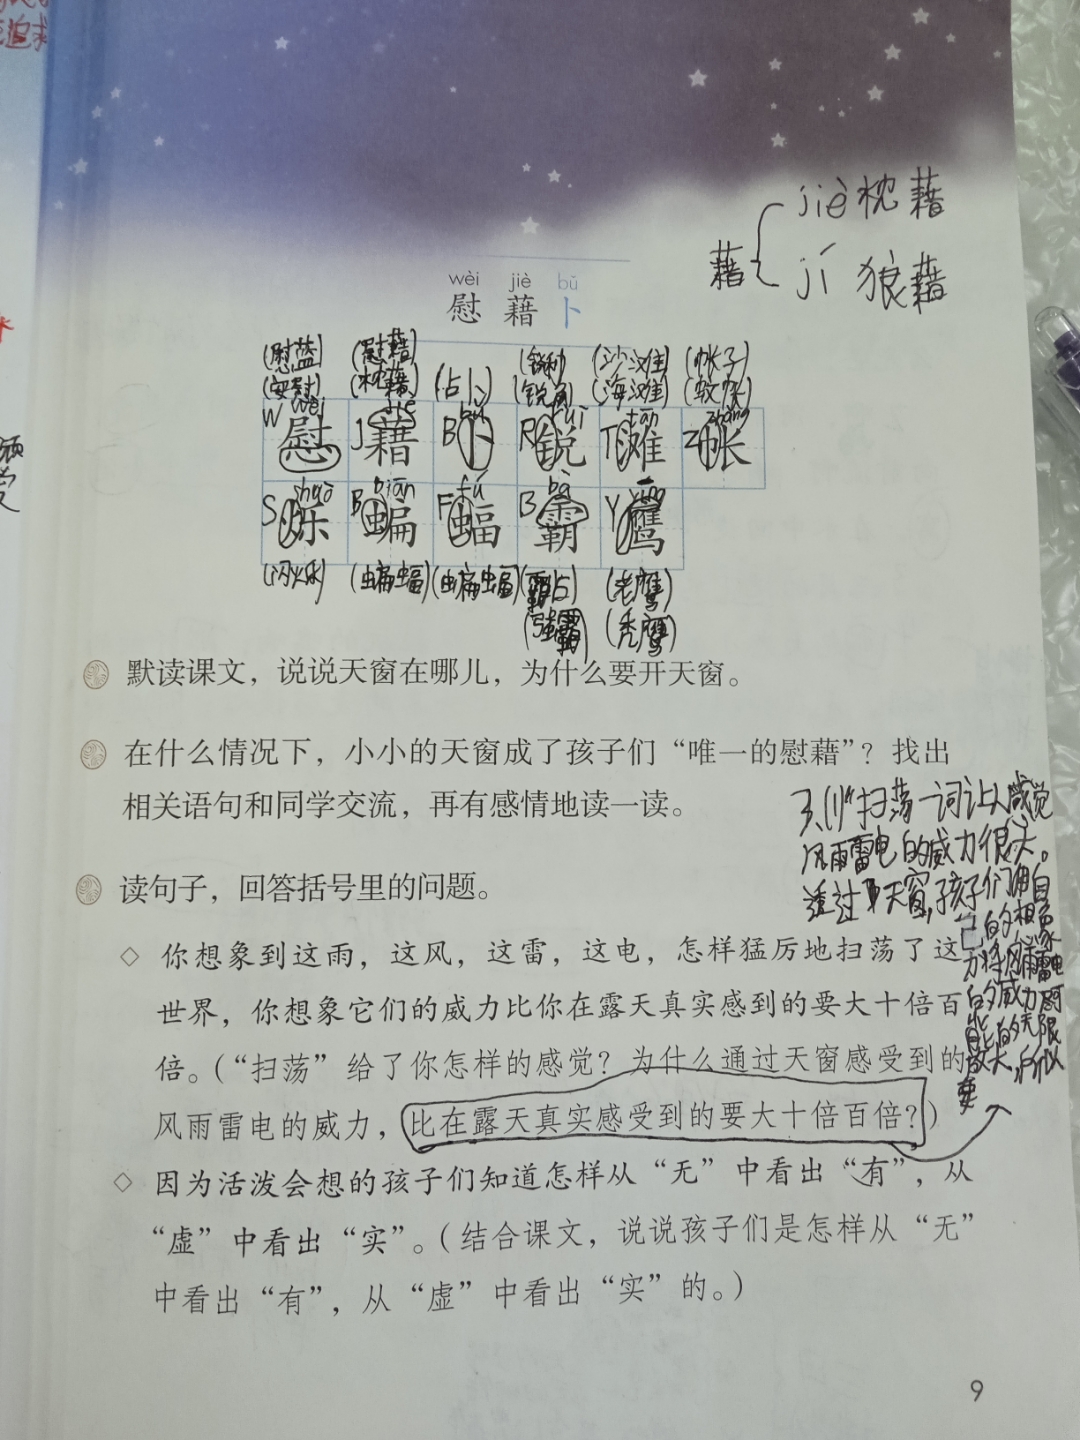 追求
jiè枕藉
藉
jí 狼藉
wèi jiè bǔ
慰 藉 卜
(慰藉) (锐利) (沙滩) (帐子)
(安慰) (枕藉) (占卜) (锐角) (海滩) (蚊帐)
W wèi J jiè B bǔ R ruì T tān Z zhàng
慰 藉 卜 锐 滩 帐
S shuò B biān F fú B bà Y yīng
烁 蝙 蝠 霸 鹰
(闪烁) (蝙蝠) (蝙蝠) (霸占) (老鹰)
(强霸) (秃鹰)
默读课文，说说天窗在哪儿，为什么要开天窗。
在什么情况下，小小的天窗成了孩子们“唯一的慰藉”？找出
相关语句和同学交流，再有感情地读一读。
扫荡一词让人感觉
风雨雷电的威力很大。
透过天窗，孩子们用自
读句子，回答括号里的问题。
你想象到这雨，这风，这雷，这电，怎样猛厉地扫荡了这
世界，你想象它们的威力比你在露天真实感到的要大十倍百
倍。（“扫荡”给了你怎样的感觉？为什么通过天窗感受到的
风雨雷电的威力，比在露天真实感受到的要大十倍百倍？）
因为活泼会想的孩子们知道怎样从“无”中看出“有”，从
“虚”中看出“实”。（结合课文，说说孩子们是怎样从“无”
中看出“有”，从“虚”中看出“实”的。）
9